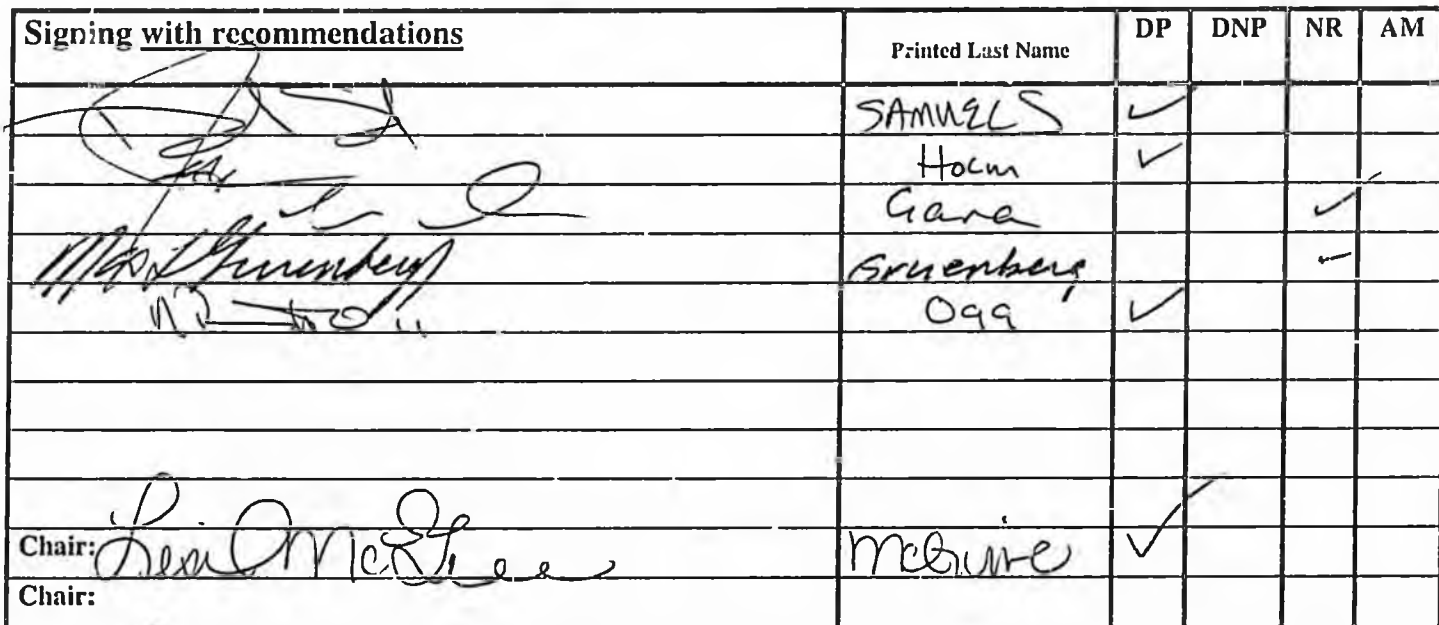 Signing with recommendations Printed Last Name DP DNP NR AM
SAMUELS ✓
Holm ✓
Gara ✓
Gruenberg ✓
Ogg ✓
Chair: McGuire ✓
Chair: